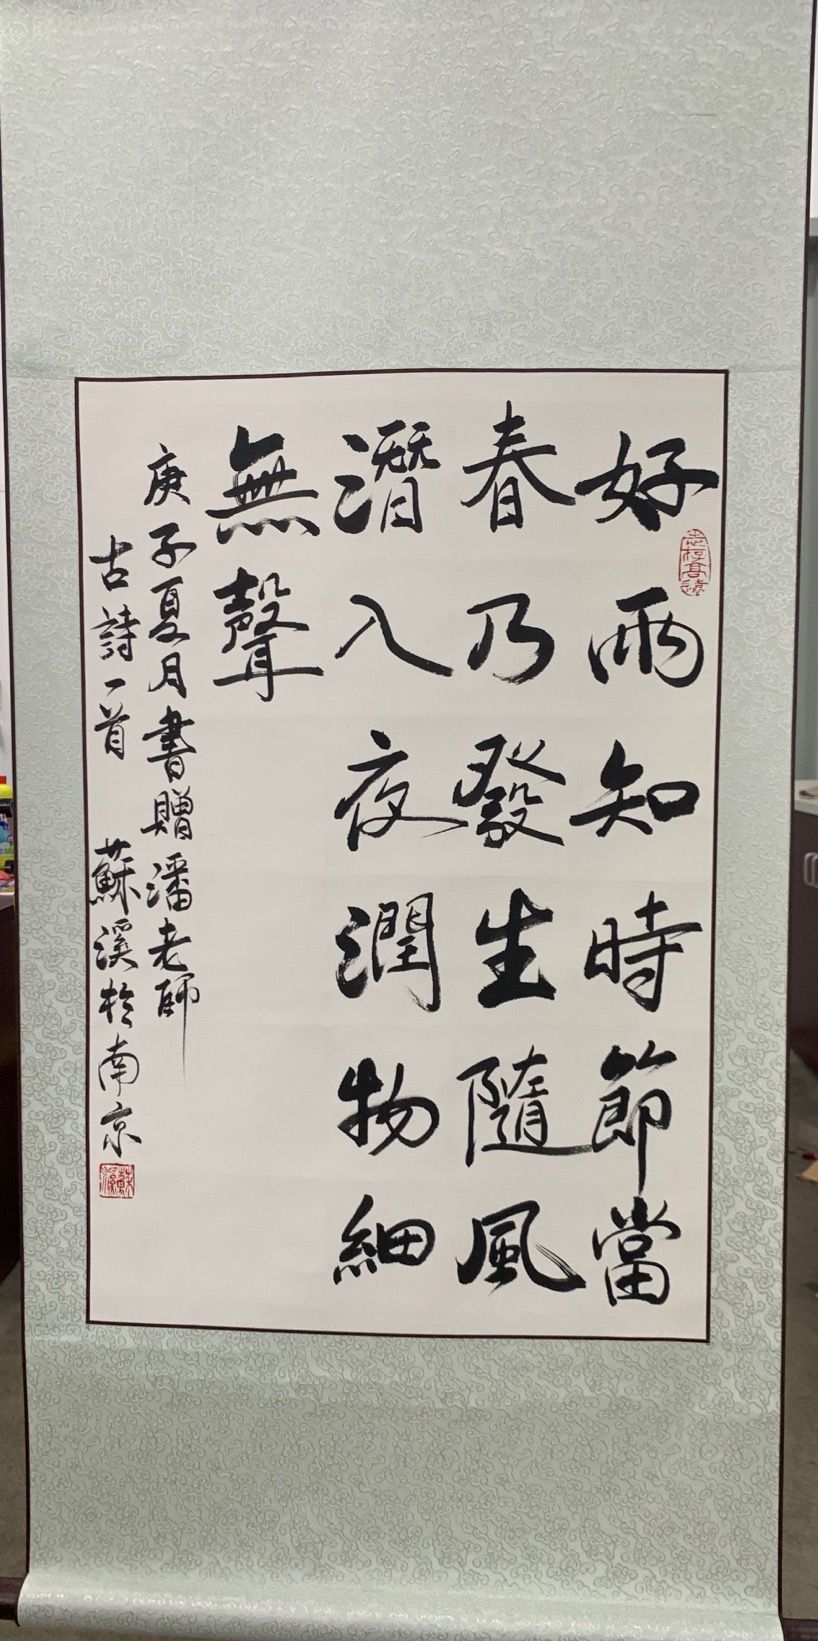 好雨知時節當
春乃發生隨風
潛入夜潤物細
無聲
庚子夏月書贈潘老師
古詩一首 蘇溪於南京
志存高遠
蘇溪